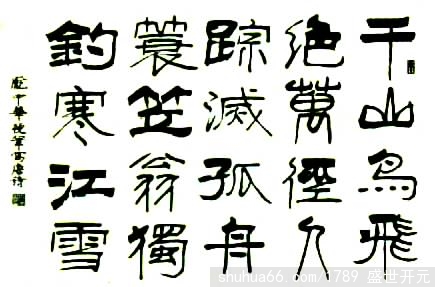 千山鳥飛
絶萬徑人
踪滅孤舟
蓑笠翁獨
釣寒江雪
龐中華硬筆寫唐詩
shuhua66.com/1789 盛世开元